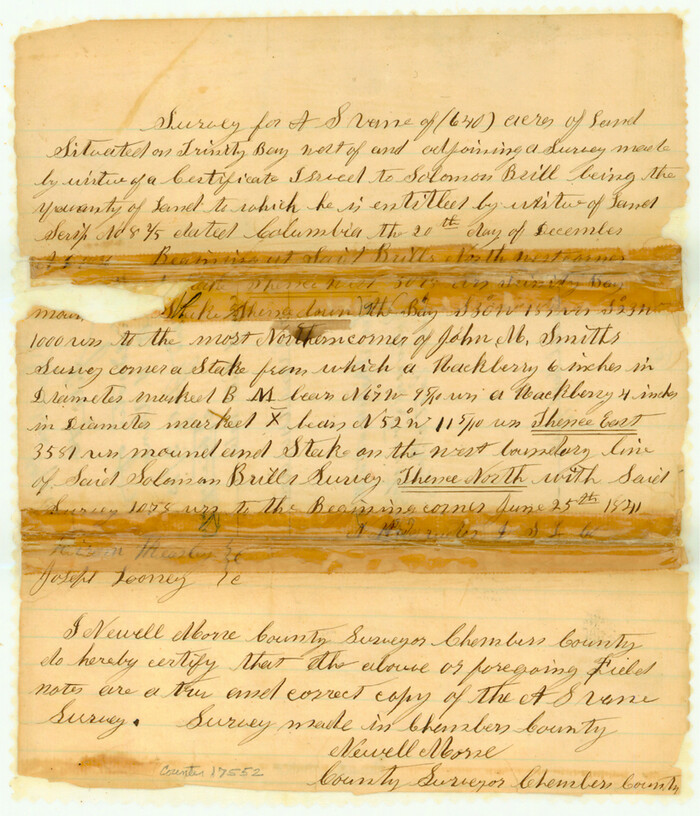 Survey for A S Vane of (640) acres of Land
Situated on Trinity Bay west of and adjoining a Survey made
by virtue of a Certificate Issued to Solomon Brill being the
quanty of Land to which he is entitled by virtue of Land
Scrip dated Columbia the 20th day of December
Beginning at Said Brills North west corner
Thence west vrs Trinity Bay
moun Stake Thence down the Bay
1000 vrs to the most Northern corner of John M. Smiths
Survey corner a Stake from which a Hackberry 6 inches in
Diameter marked B M bears N 67 W 9 5/10 vrs a Hackberry 4 inches
in Diameter marked X bears N 52° W 11 5/10 vrs Thence East
3581 vrs mound and Stake on the west boundary line
of Said Solomon Brills Survey Thence North with Said
Survey 1078 vrs to the Beginning corner June 25th 1841
Joseph Looney
I Newell Morse County Surveyor Chembers County
do hereby certify that the above or foregoing Field
notes are a tru and correct copy of the A S Vane
Survey. Survey made in Chembers County
Newell Morse
Counter 17552
County Surveyor Chembers County